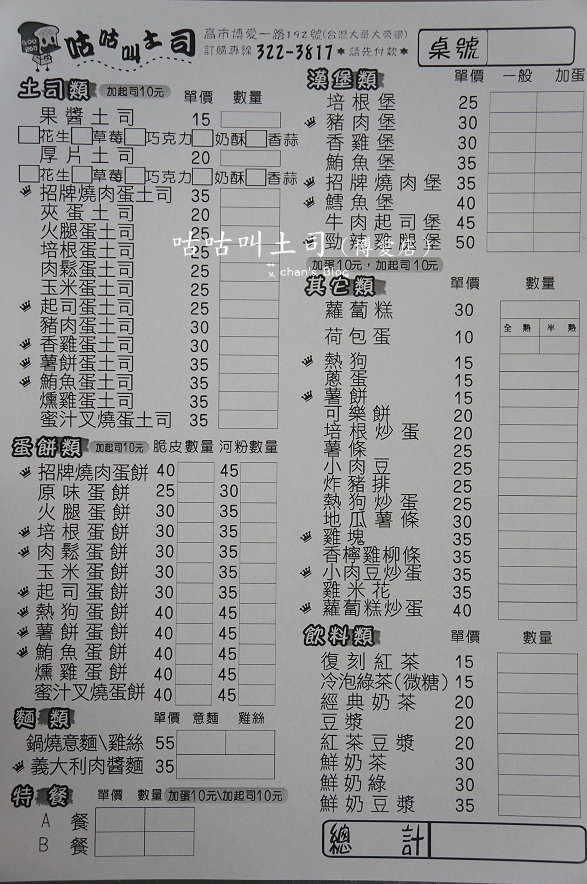 咕咕叫土司
高市博愛一路192號(台灣大哥大旁邊)
訂購專線 322-3817 ★請先付款★
桌號
土司類 加起司10元 單價 數量
果醬土司 15
花生 草莓 巧克力 奶酥 香蒜
厚片土司 20
花生 草莓 巧克力 奶酥 香蒜
招牌燒肉蛋土司 35
夾蛋土司 20
火腿蛋土司 25
培根蛋土司 25
肉鬆蛋土司 25
玉米蛋土司 25
起司蛋土司 25
豬肉蛋土司 30
香雞蛋土司 30
薯餅蛋土司 35
鮪魚蛋土司 35
燻雞蛋土司 35
蜜汁叉燒蛋土司 35
蛋餅類 加起司10元 脆皮 數量 河粉 數量
招牌燒肉蛋餅 40 45
原味蛋餅 25 30
火腿蛋餅 30 35
培根蛋餅 30 35
肉鬆蛋餅 30 35
玉米蛋餅 30 35
起司蛋餅 30 35
熱狗蛋餅 40 45
薯餅蛋餅 40 45
鮪魚蛋餅 40 45
燻雞蛋餅 40 45
蜜汁叉燒蛋餅 40 45
麵類 單價 意麵 雞絲
鍋燒意麵\雞絲 55
義大利肉醬麵 35
特餐 單價 數量 加蛋10元\加起司10元
A 餐
B 餐
漢堡類 單價 一般 加蛋
培根堡 25
豬肉堡 30
香雞堡 30
鮪魚堡 35
招牌燒肉堡 35
鱈魚堡 40
牛肉起司堡 45
勁辣雞腿堡 50
加蛋10元，加起司10元
其它類 單價 數量
蘿蔔糕 30
荷包蛋 10 全熟 半熟
熱狗 15
蔥蛋 15
薯餅 15
可樂餅 20
培根炒蛋 20
薯條 25
小肉豆 25
炸豬排 25
熱狗炒蛋 25
地瓜薯條 30
雞塊 30
香檸雞柳條 35
小肉豆炒蛋 35
雞米花 35
蘿蔔糕炒蛋 40
飲料類 單價 數量
復刻紅茶 15
冷泡綠茶(微糖) 15
經典奶茶 20
豆漿 20
紅茶豆漿 20
鮮奶茶 30
鮮奶綠 30
鮮奶豆漿 35
總計
咕咕叫土司 (博愛店)
chanik Blog